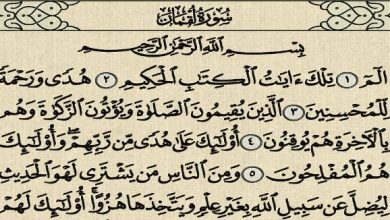 سُورَةُ لُقْمَان
بِسْمِ اللَّهِ الرَّحْمَٰنِ الرَّحِيمِ
الٓمٓ ١ تِلْكَ ءَايَاتُ الْكِتَابِ الْحَكِيمِ ٢ هُدًى وَرَحْمَةً
لِّلْمُحْسِنِينَ ٣ الَّذِينَ يُقِيمُونَ الصَّلَاةَ وَيُؤْتُونَ الزَّكَاةَ وَهُم
بِالْآخِرَةِ هُمْ يُوقِنُونَ ٤ أُولَٰئِكَ عَلَىٰ هُدًى مِّن رَّبِّهِمْ وَأُولَٰئِكَ
هُمُ الْمُفْلِحُونَ ٥ وَمِنَ النَّاسِ مَن يَشْتَرِي لَهْوَ الْحَدِيثِ
لِيُضِلَّ عَن سَبِيلِ اللَّهِ بِغَيْرِ عِلْمٍ وَيَتَّخِذَهَا هُزُوًا أُولَٰئِكَ لَهُمْ